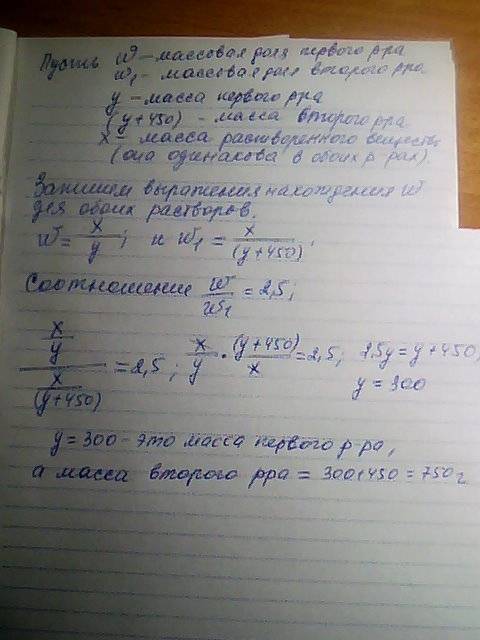 Пусть w – массовая доля первого р-ра
w₁ – массовая доля второго р-ра
y – масса первого р-ра
(y+450) – масса второго р-ра
x – масса растворенного веществ
(она одинакова в обоих р-рах).
Запишем выражения нахождения w
для обоих растворов.
w = x/y; и w₁ = x/(y+450);
Соотношение w/w₁ = 2,5;
(x/y)/(x/(y+450)) = 2,5; x/y · (y+450)/x = 2,5; 2,5y = y+450;
y = 300
y = 300 – это масса первого р-ра,
а масса второго р-ра = 300+450 = 750г